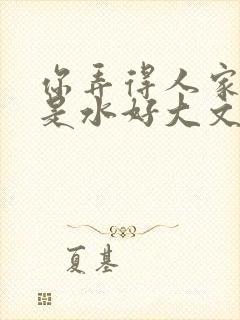 你弄得人家
是水好大文
夏基